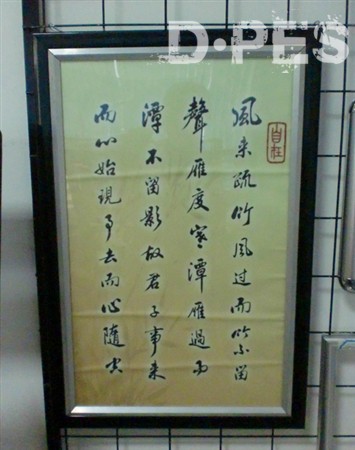 D·PES
自在
風来疏竹風过而竹不留
聲雁度寒潭雁過而
潭不留影故君子事来
而心始現事去而心隨空